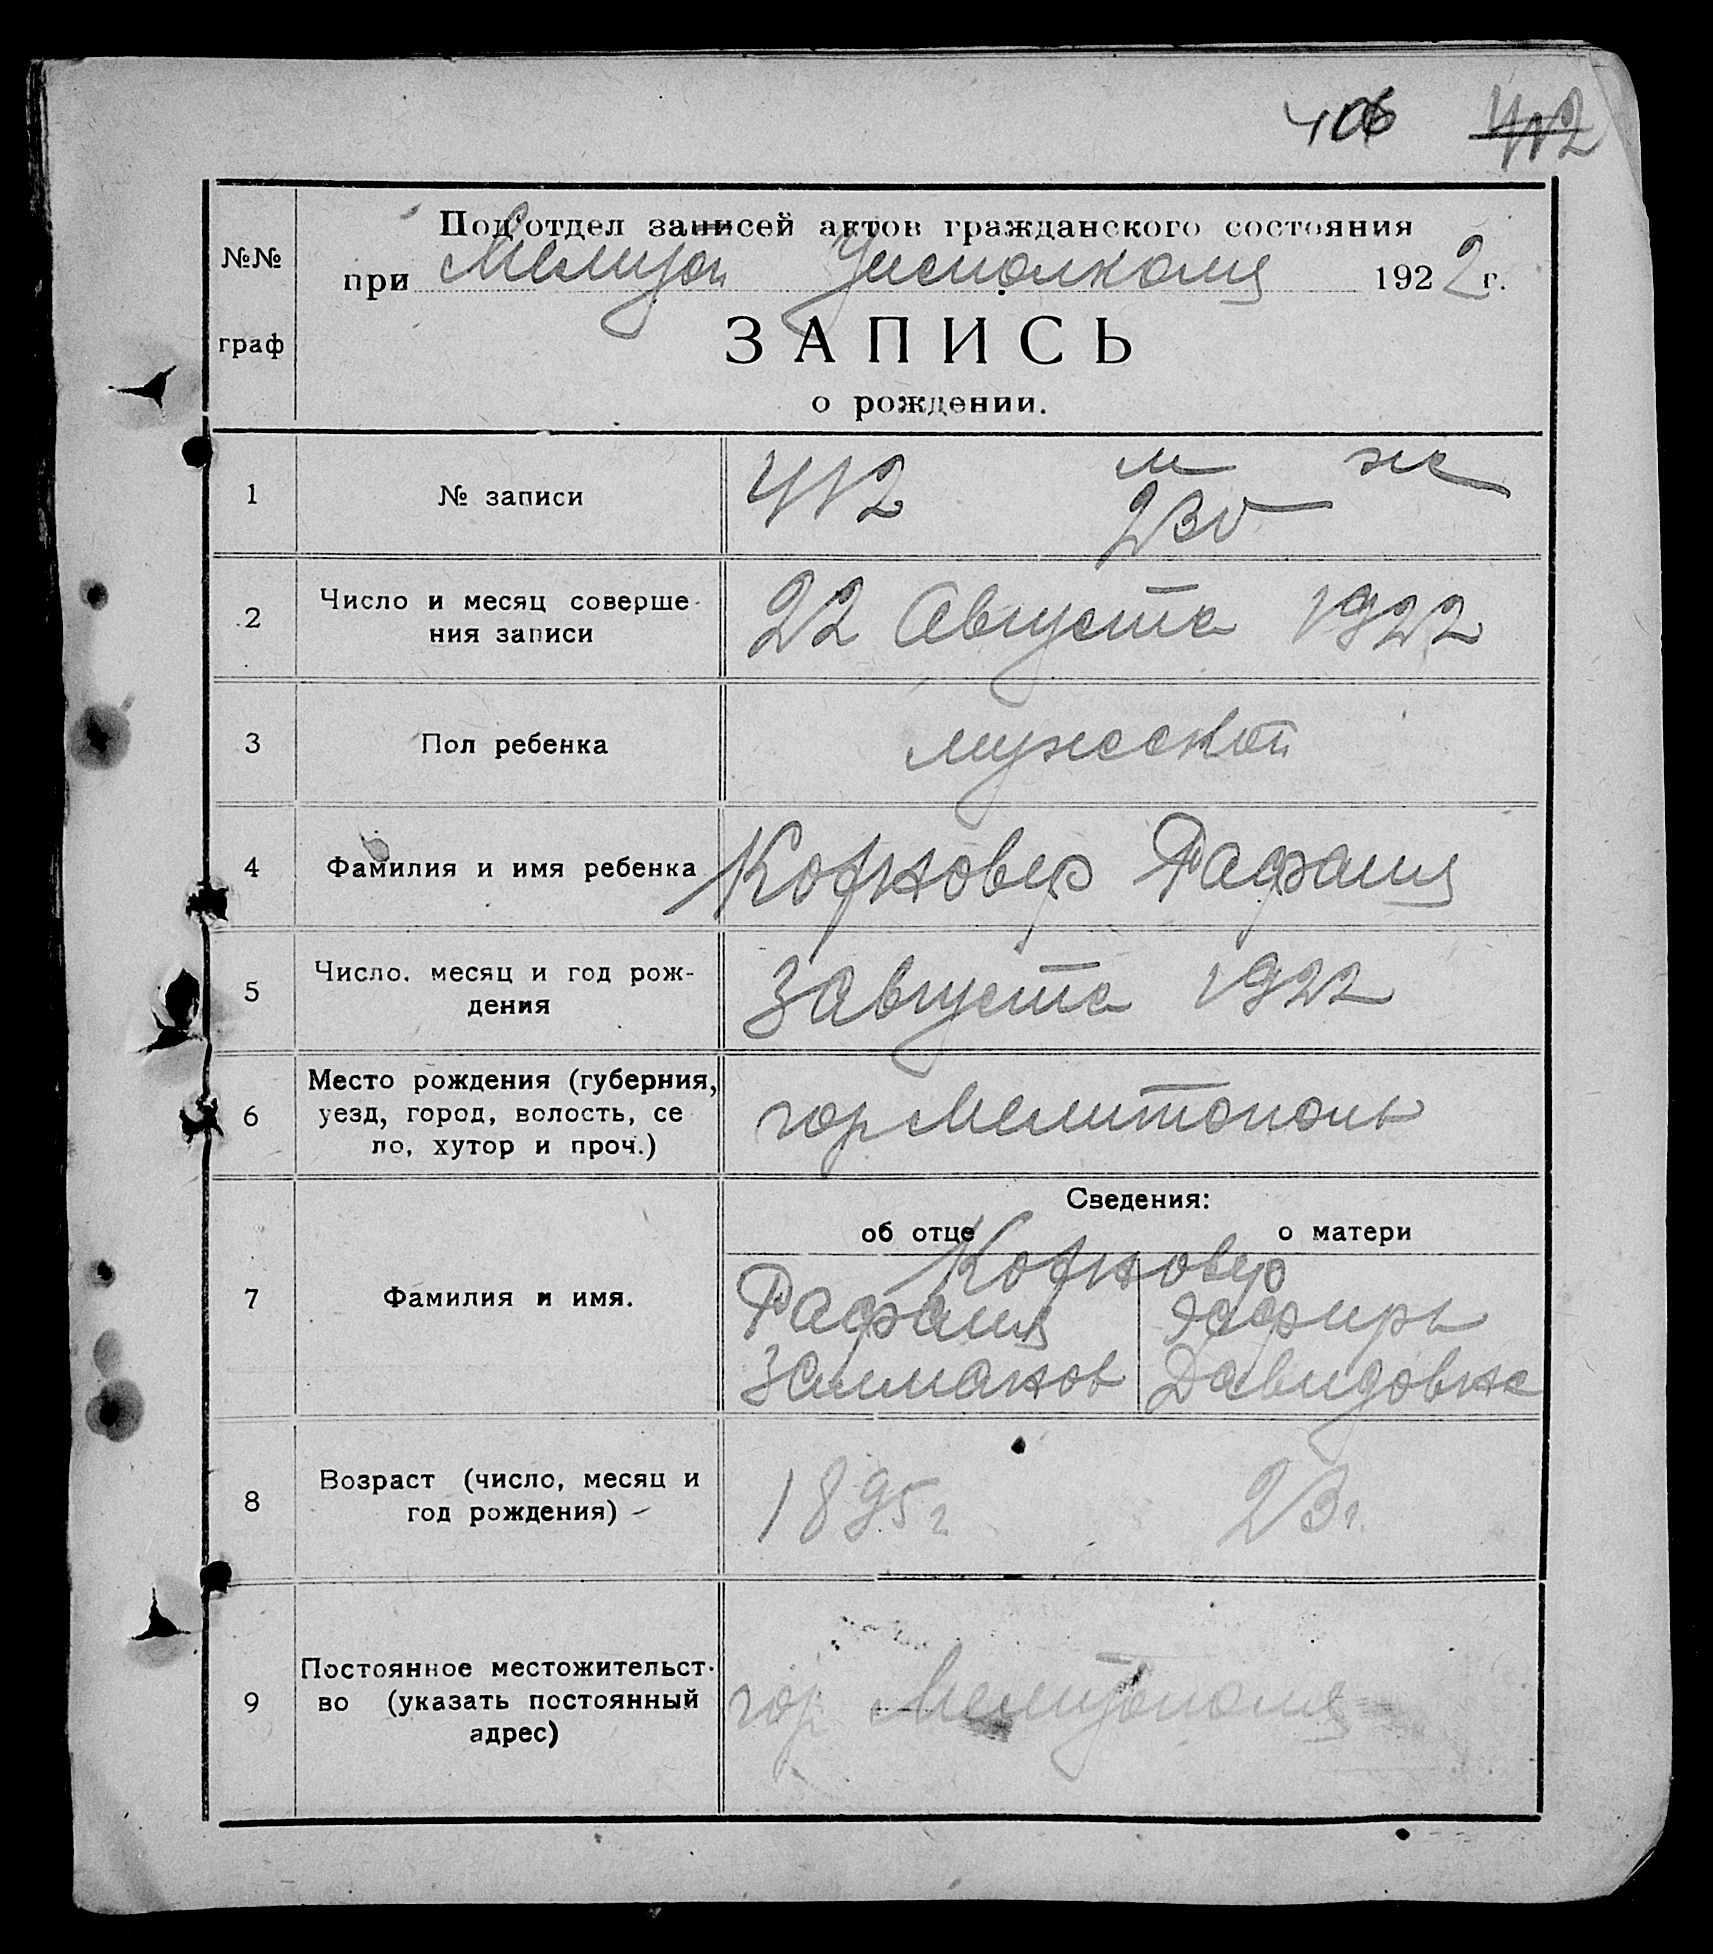 406 412
№№
граф
Под'отдел записей актов гражданского состояния
при Мелитоп Уисполкома 1922 г.
ЗАПИСЬ
о рождении.
1 № записи 412 м ж
230
2 Число и месяц соверше-
ния записи 22 Августа 1922
3 Пол ребенка мужской
4 Фамилия и имя ребенка Рафаил
5 Число, месяц и год рож-
дения 3 Августа 1922
6 Место рождения (губерния,
уезд, город, волость, се
ло, хутор и проч.) гор Мелитополь
Сведения:
об отце о матери
7 Фамилия и имя.
Рафаил Эсфирь
Залманов Давидовна
8 Возраст (число, месяц и
год рождения) 1895 г 23 г.
9 Постоянное местожительст-
во (указать постоянный
адрес) гор Мелитополь